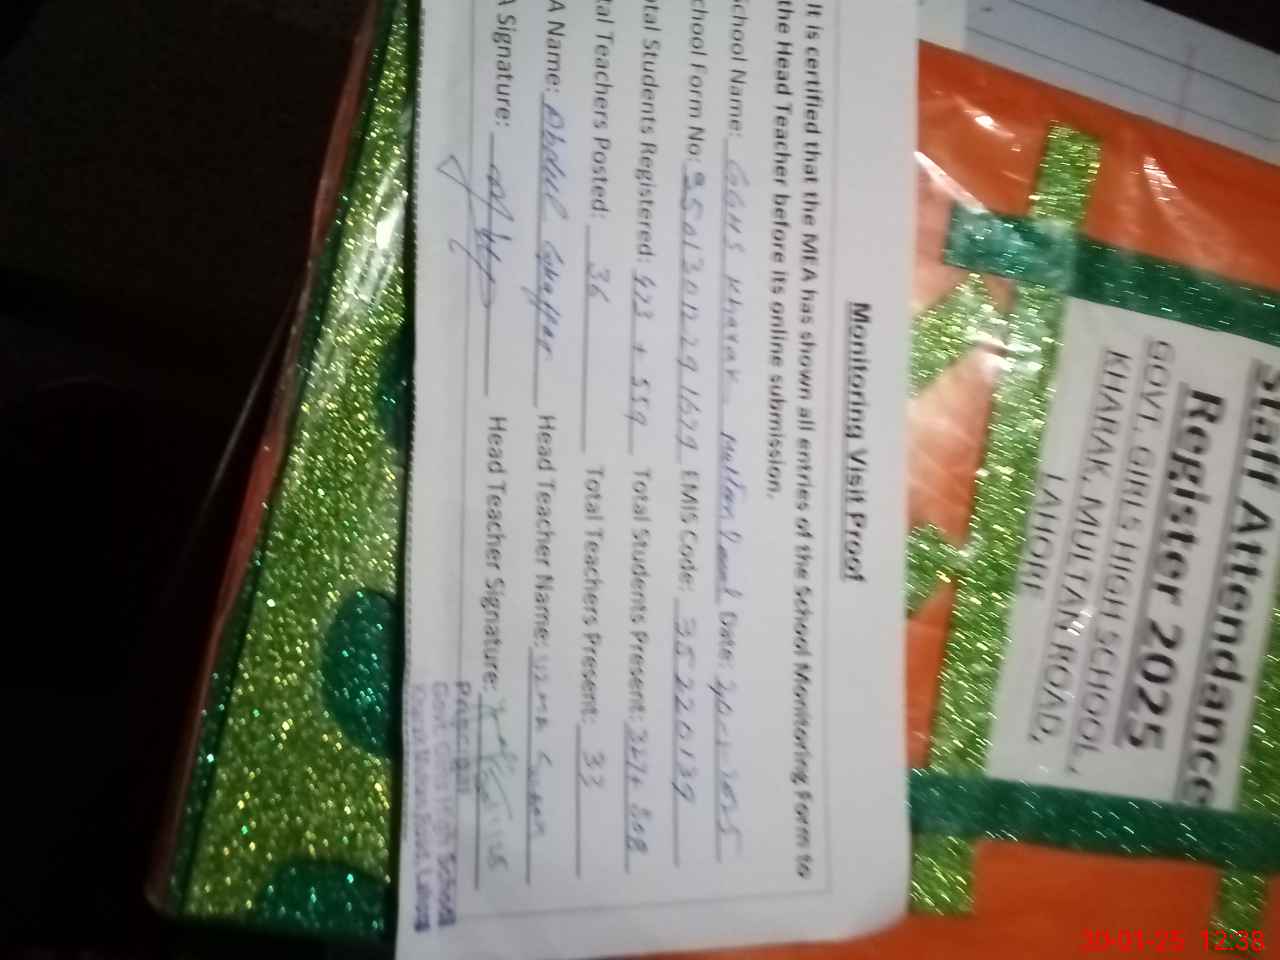 Monitoring Visit Proof
It is certified that the MEA has shown all entries of the School Monitoring Form to
the Head Teacher before its online submission.
School Name: GGHS Kharak Multan Road Date: 30-01-2025
School Form No: EMIS Code: 35220139
tal Students Registered: + 559 Total Students Present:
tal Teachers Posted: 36 Total Teachers Present: 33
A Name: Abdul Ghaffar Head Teacher Name: Uzma
A Signature: Head Teacher Signature:
Principal
Govt. Girls High School
Kharak Multan Road, Lahore
Staff Attendance
Register 2025
GOVT. GIRLS HIGH SCHOOL,
KHARAK, MULTAN ROAD,
LAHORE
30-01-25 12:38